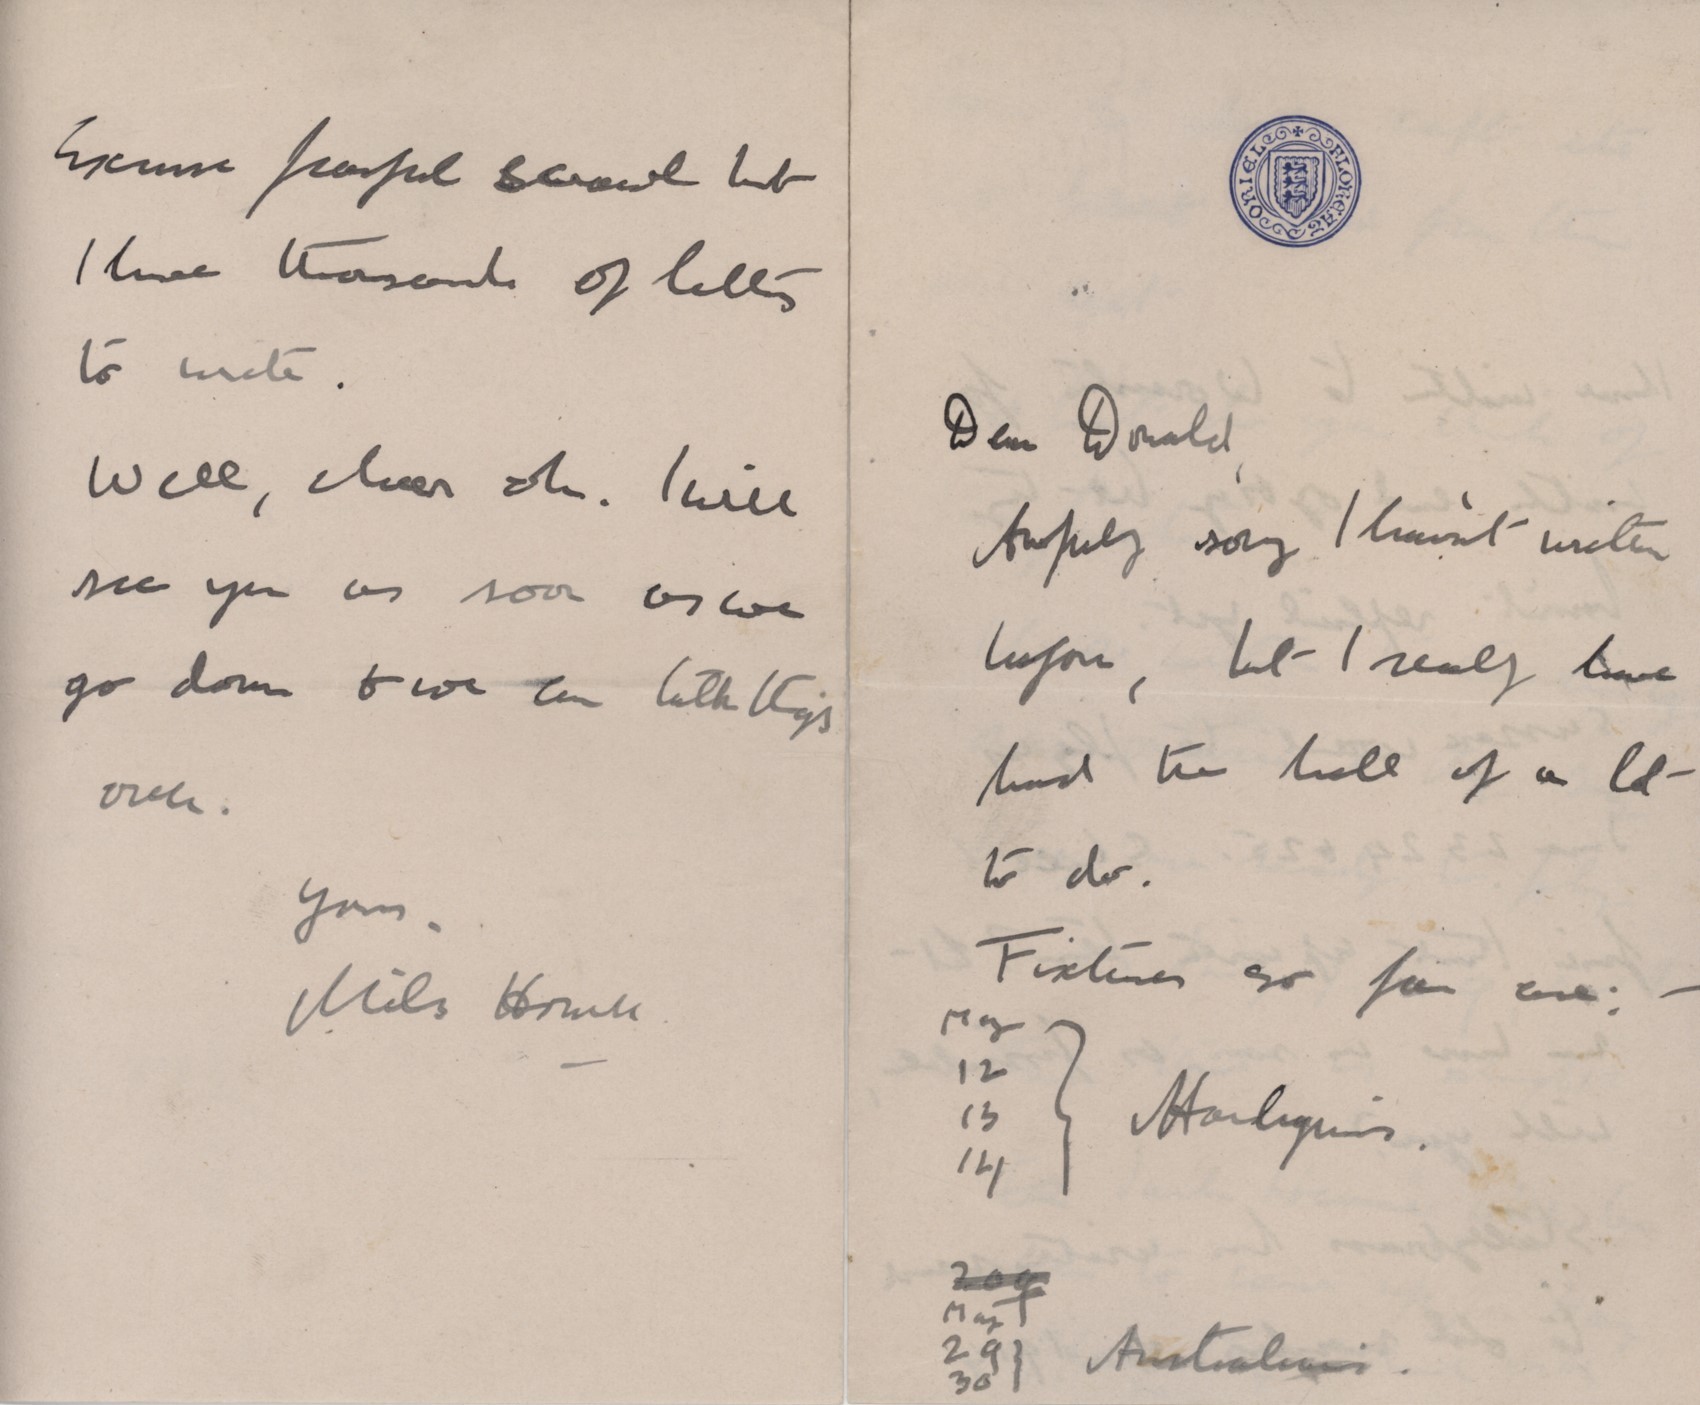 FLOREAT ORIEL
Dear Donald,
Awfully sorry I haven't written
before, but I really have
had the hell of a lot
to do.
Fixtures so far are: —
May
12
13
14
Harlequins.
May
29
30
Australians.
Excuse fearful scrawl but
I have thousands of letters
to write.
Well, cheer oh. I will
see you as soon as we
go down & we can talk things
over.
Yours,
Miles Howell